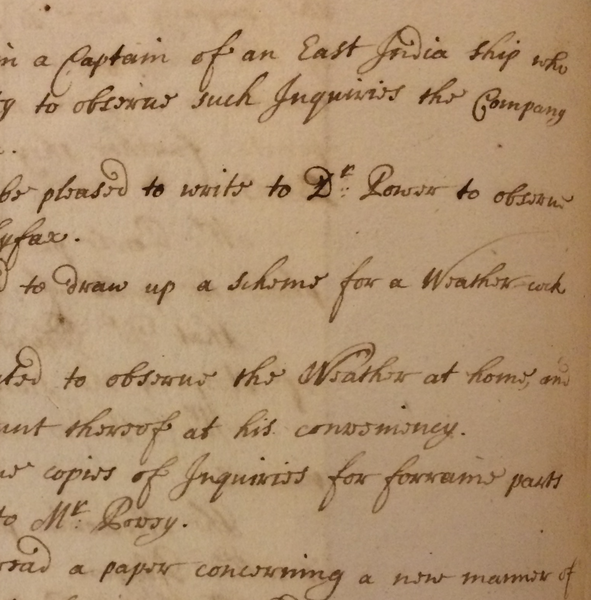 in a Captain of an East India ship who
to observe such Inquiries the Company
be pleased to write to Dr: Power to observe
lyfax.
to draw up a scheme for a Weather-cock
ted to observe the Weather at home, and
unt thereof at his conveniency.
ue copies of Inquiries for forraine parts
to Mr: Povey.
read a paper concerning a new manner of